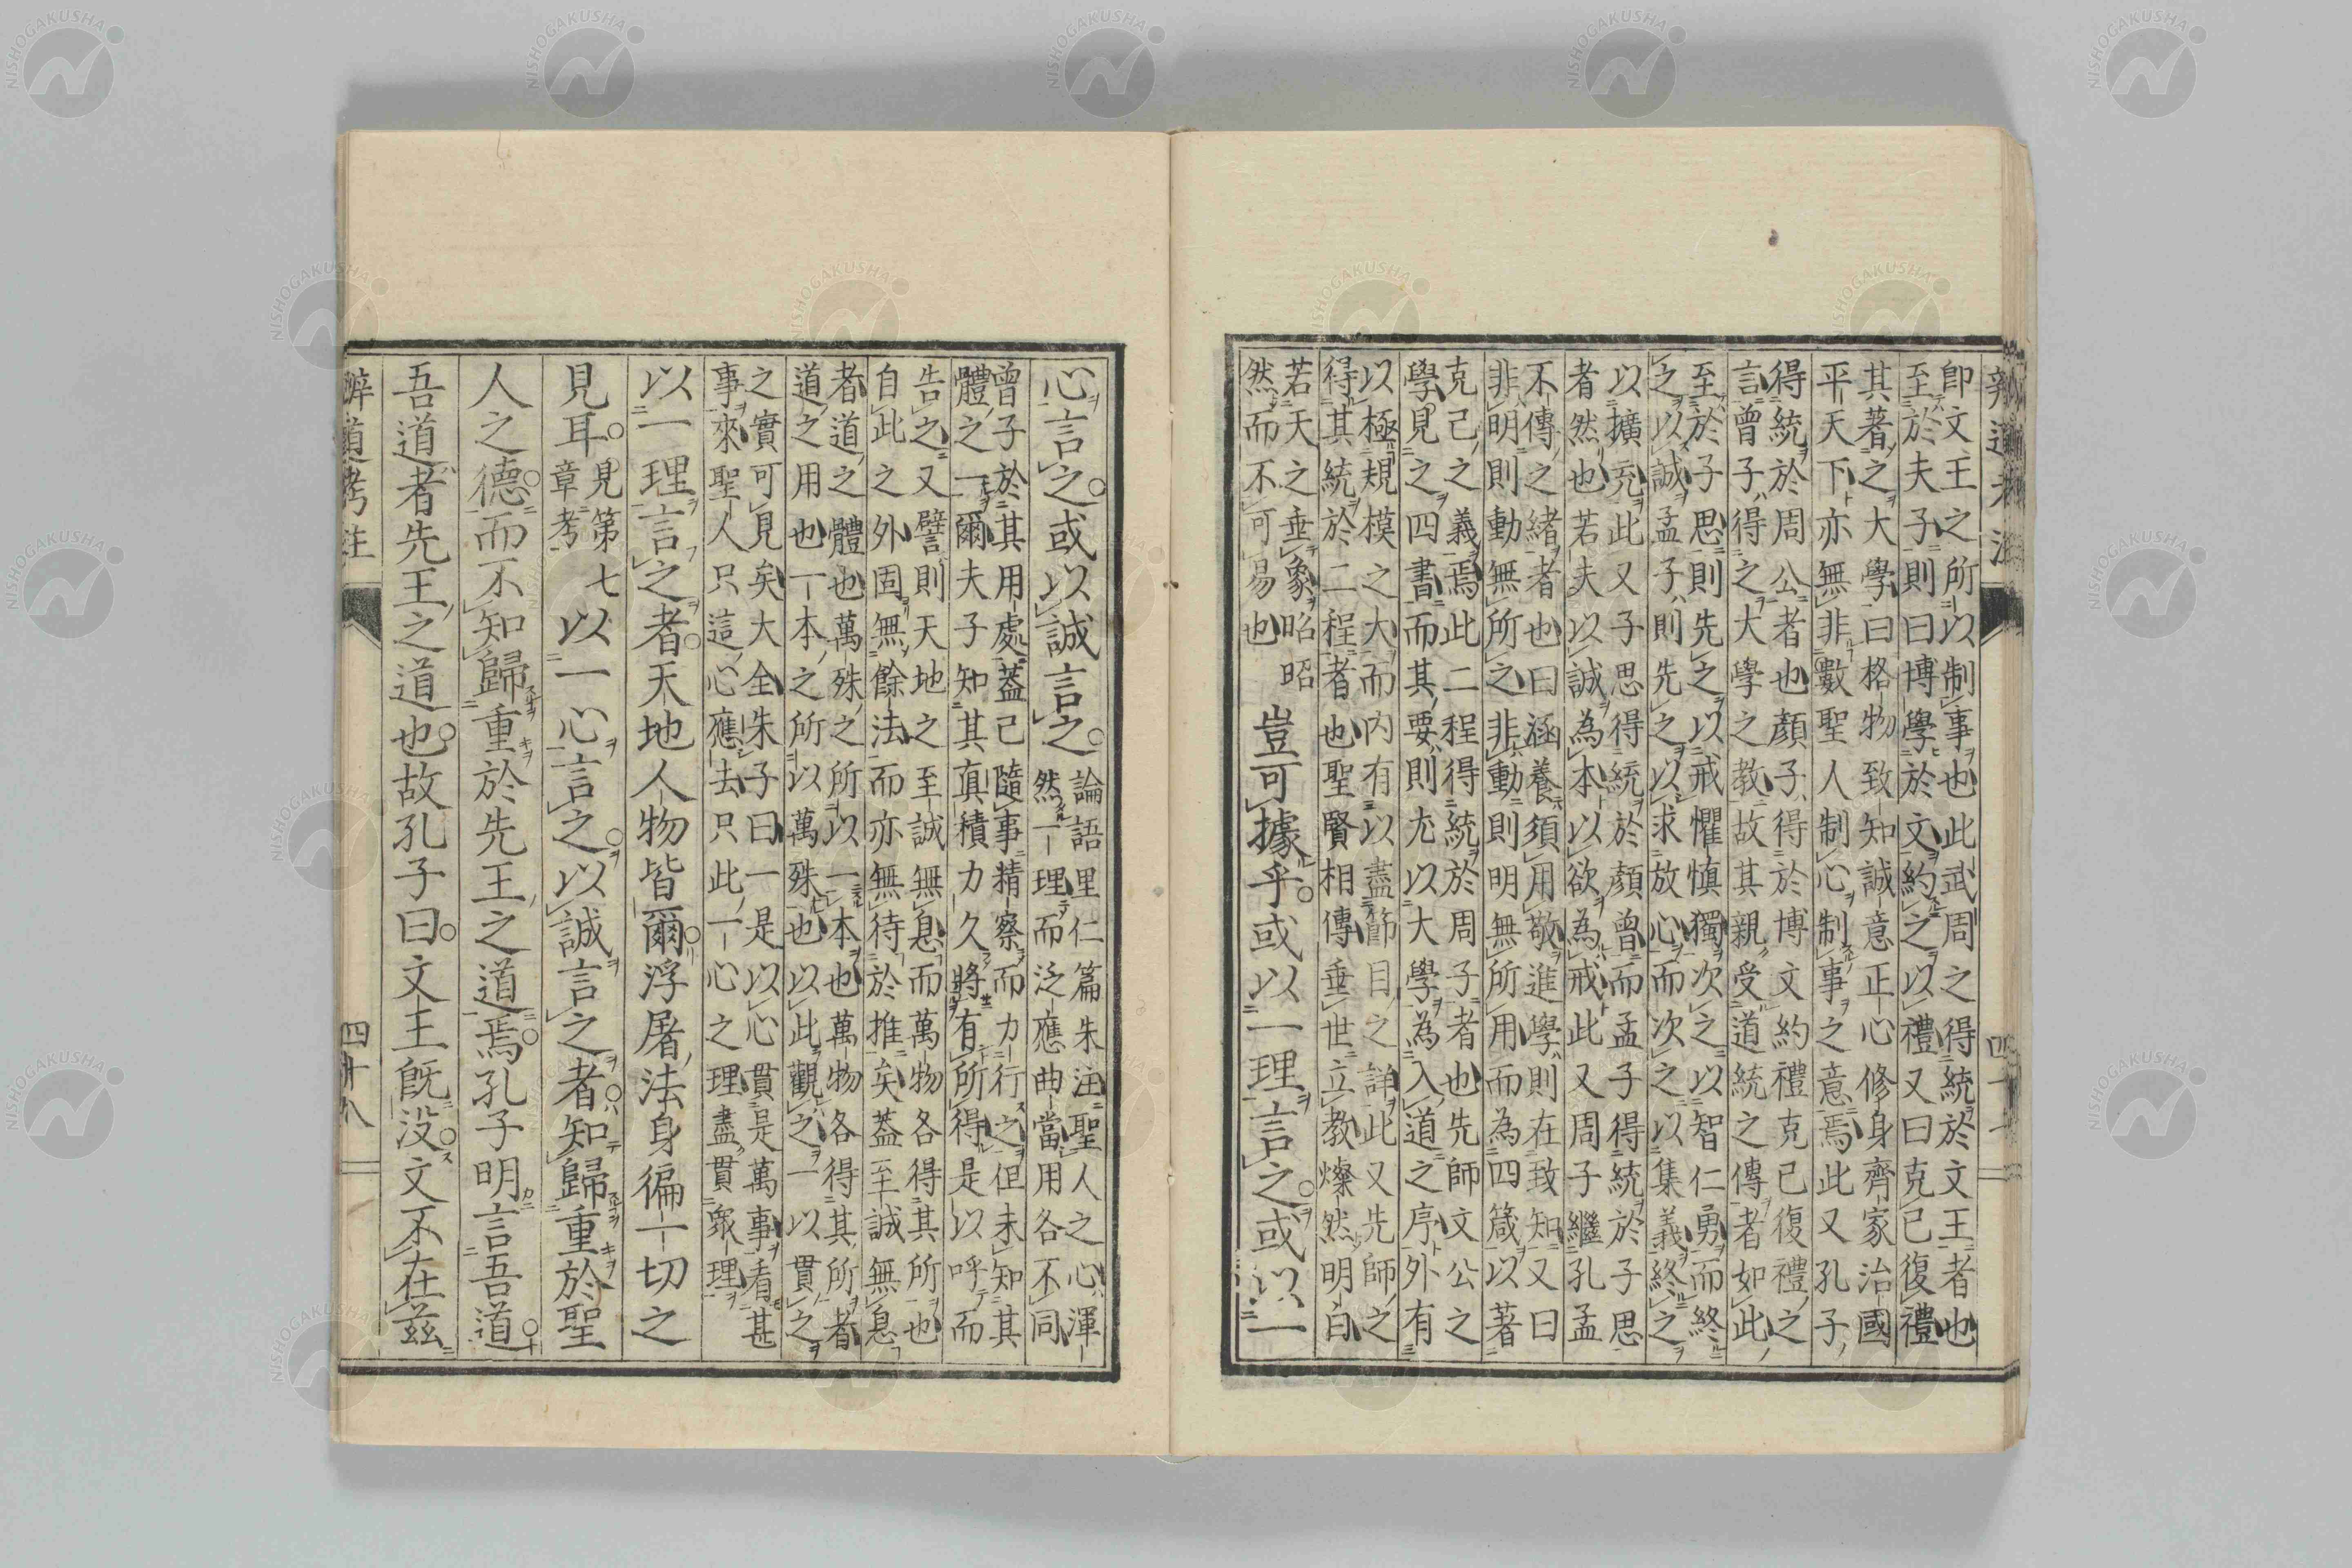 辨道考注
即文王之所以制事也此武周之得統於文王者也
至於夫子則曰博學於文約之以禮又曰克已復禮
其著之大學曰格物致知誠意正心修身齊家治國
平天下亦無非數聖人制心制事之意焉此又孔子
得統於周公者也顏子得於博文約禮克已復禮之
言曾子得之大學之教故其親受道統之傳者如此
至於子思則先之以戒懼慎獨次之以智仁勇而終
之以誠孟子則先之以求放心而次之以集義終之
以擴充此又子思得統於顏曾而孟子得統於子思
者然也若夫以誠為本以欲為戒此又周子繼孔孟
不傳之緒者也曰涵養須用敬進學則在致知又曰
非明則動無所之非動則明無所用而為四箴以著
克己之義焉此二程得統於周子者也先師文公之
學見之四書而其要則尤以大學為入道之序外有
以極規模之大而内有以盡節目之詳此又先師之
得其統於二程者也聖賢相傳垂世立教燦然明白
若天之垂象昭昭
然而不可易也
豈可據乎或以一理言之或以一
心言之或以誠言之
論語里仁篇朱注聖人之心渾
然一理而泛應曲當用各不同
曾子於其用處蓋已隨事精察而力行之但未知其
體之一爾夫子知其真積力久將有所得是以呼而
告之又譬則天地之至誠無息而萬物各得其所也
自此之外固無餘法而亦無待於推矣蓋至誠無息
者道之體也萬殊之所以一本也萬物各得其所者
道之用也一本之所以萬殊也以此觀之一以貫之
之實可見矣大全朱子曰一是以心貫是萬事看甚
事來聖人只這心應去只此一心之理盡貫衆理
以一理言之者天地人物皆爾浮屠法身徧一切之
見耳
見第七
章考
以一心言之以誠言之者知歸重於聖
人之德而不知歸重於先王之道焉孔子明言吾道
吾道者先王之道也故孔子曰文王既没文不在茲
辨道考注
四十八